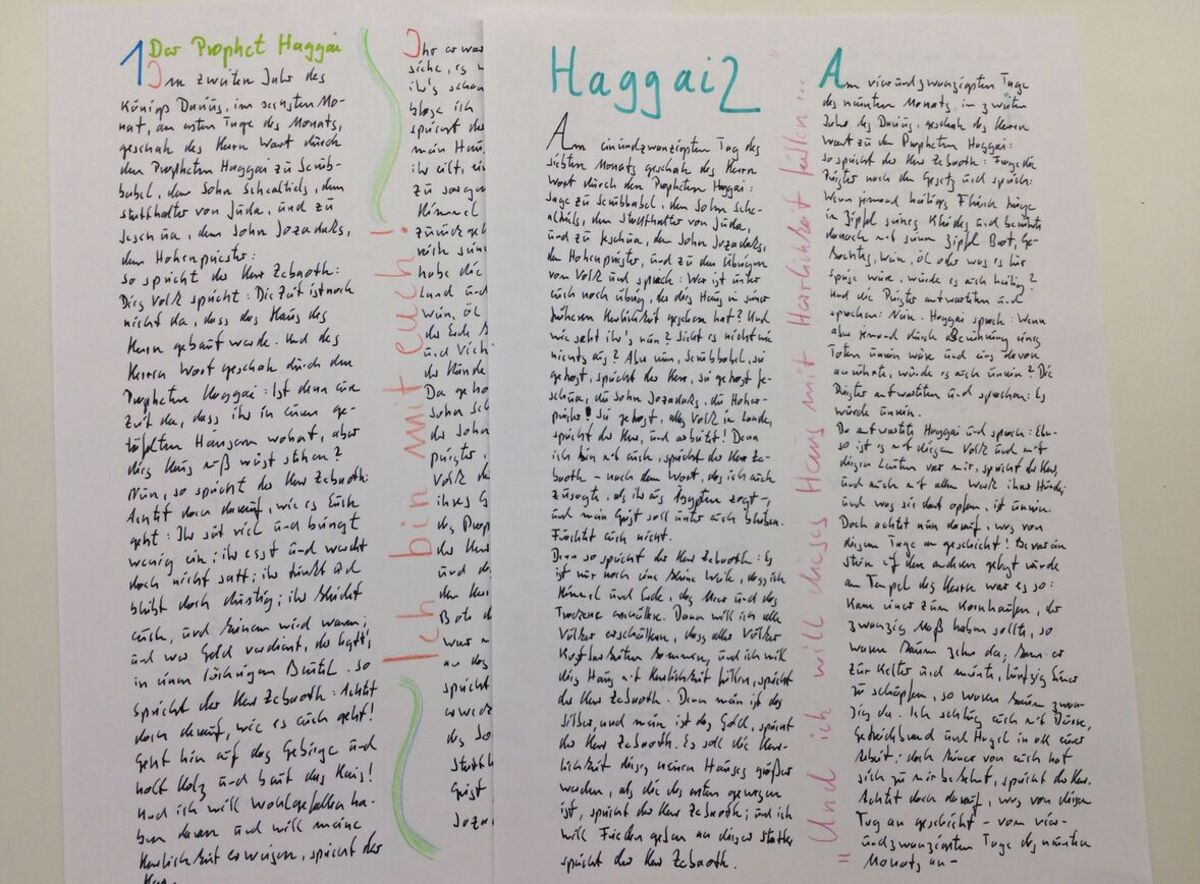 1 Der Prophet Haggai
Im zweiten Jahr des
Königs Darius, im sechsten Mo-
nat, am ersten Tage des Monats,
geschah des Herrn Wort durch
den Propheten Haggai zu Serub-
babel, dem Sohn Schealtiels, dem
Statthalter von Juda, und zu
Jeschua, dem Sohn Jozadaks,
dem Hohenpriester:
So spricht der Herr Zebaoth:
Dies Volk spricht: Die Zeit ist noch
nicht da, dass das Haus des
Herrn gebaut werde. Und des
Herrn Wort geschah durch den
Propheten Haggai: Ist denn eure
Zeit da, dass ihr in euren ge-
täfelten Häusern wohnt, aber
dies Haus muß wüst stehen?
Nun, so spricht der Herr Zebaoth:
Achtet doch darauf, wie es euch
geht: Ihr sät viel und bringt
wenig ein; ihr esst und werdet
doch nicht satt; ihr trinkt und
bleibt doch durstig; ihr kleidet
euch, und keinem wird warm;
und wer Geld verdient, der legt's
in einen löchrigen Beutel. So
spricht der Herr Zebaoth: Achtet
doch darauf, wie es euch geht!
Geht hin auf das Gebirge und
holt Holz und baut das Haus!
Und ich will Wohlgefallen ha-
ben daran und will meine
Herrlichkeit erweisen, spricht der
Herr.
Ich bin mit euch!
Ihr erwar
siehe, es w
ihr's schon
blase ich
spricht der
mein Haus
ihr eilt, ein
zu sorgen
Himmel
zurück geh
reich sein
habe die
Land und
Wein, Öl
der Erde
und Vieh
der Hände
Da geho
Sohn Sch
der Sohn
priester,
Volk de
ihres G
des Prop
der Herr
und da
den Herr
Bote d
war m
an das
spricht
erweck
des So
Statth
Geist
Joza
Haggai 2
Am einundzwanzigsten Tag des
siebten Monats geschah des Herrn
Wort durch den Propheten Haggai:
Sage zu Serubbabel, dem Sohn Sche-
altiels, dem Statthalter von Juda,
und zu Jeschua, dem Sohn Jozadaks,
dem Hohenpriester, und zu den Übrigen
vom Volk und sprich: Wer ist unter
euch noch übrig, der dies Haus in seiner
früheren Herrlichkeit gesehen hat? Und
wie seht ihr's nun? Sieht es nicht wie
nichts aus? Aber nun, Serubbabel, sei
getrost, spricht der Herr, sei getrost Je-
schua, du Sohn Jozadaks, du Hoher-
priester! Sei getrost, alles Volk im Lande,
spricht der Herr, und arbeitet! Denn
ich bin mit euch, spricht der Herr Ze-
baoth – nach dem Wort, das ich euch
zusagte, als ihr aus Ägypten zogt –,
und mein Geist soll unter euch bleiben.
Fürchtet euch nicht.
Denn so spricht der Herr Zebaoth: Es
ist nur noch eine kleine Weile, dass ich
Himmel und Erde, das Meer und das
Trockene erschüttre. Dann will ich alle
Völker erschüttern, dass aller Völker
Kostbarkeiten kommen, und ich will
dies Haus mit Herrlichkeit füllen, spricht
der Herr Zebaoth. Denn mein ist das
Silber, und mein ist das Gold, spricht
der Herr Zebaoth. Es soll die Herr-
lichkeit dieses neuen Hauses größer
werden, als die des ersten gewesen
ist, spricht der Herr Zebaoth; und ich
will Frieden geben an dieser Stätte
spricht der Herr Zebaoth.
" Und ich will dieses Haus mit Herrlichkeit füllen... "
Am vierundzwanzigsten Tage
des neunten Monats, im zweiten
Jahr des Darius, geschah des Herrn
Wort zu dem Propheten Haggai:
So spricht der Herr Zebaoth: Frage die
Priester nach dem Gesetz und sprich:
Wenn jemand heiliges Fleisch trüge
im Zipfel seines Kleides und berührte
danach mit seinem Zipfel Brot, Ge-
kochtes, Wein, Öl oder was es für
Speise wäre, würde es auch heilig?
Und die Priester antworteten und
sprachen: Nein. Haggai sprach: Wenn
aber jemand durch Berührung eines
Toten unrein wäre und eins davon
anrührte, würde es auch unrein? Die
Priester antworteten und sprachen: Es
würde unrein.
Da antwortete Haggai und sprach: Eben-
so ist es mit diesem Volk und mit
diesen Leuten vor mir, spricht der Herr,
und auch mit allem Werk ihrer Hände;
und was sie dort opfern, ist unrein.
Doch achtet nun darauf, was von
diesem Tage an geschieht! Bevor ein
Stein auf den anderen gelegt wurde
am Tempel des Herrn war es so:
Kam einer zum Kornhaufen, der
zwanzig Maß haben sollte, so
waren kaum zehn da; kam er
zur Kelter und meinte, fünfzig Eimer
zu schöpfen, so waren kaum zwan-
zig da. Ich schlug euch mit Dürre,
Getreidebrand und Hagel in all eurer
Arbeit; doch keiner von euch hat
sich zu mir bekehrt, spricht der Herr.
Achtet doch darauf, was von diesem
Tag an geschieht – vom vier-
undzwanzigsten Tage des neunten
Monats an –